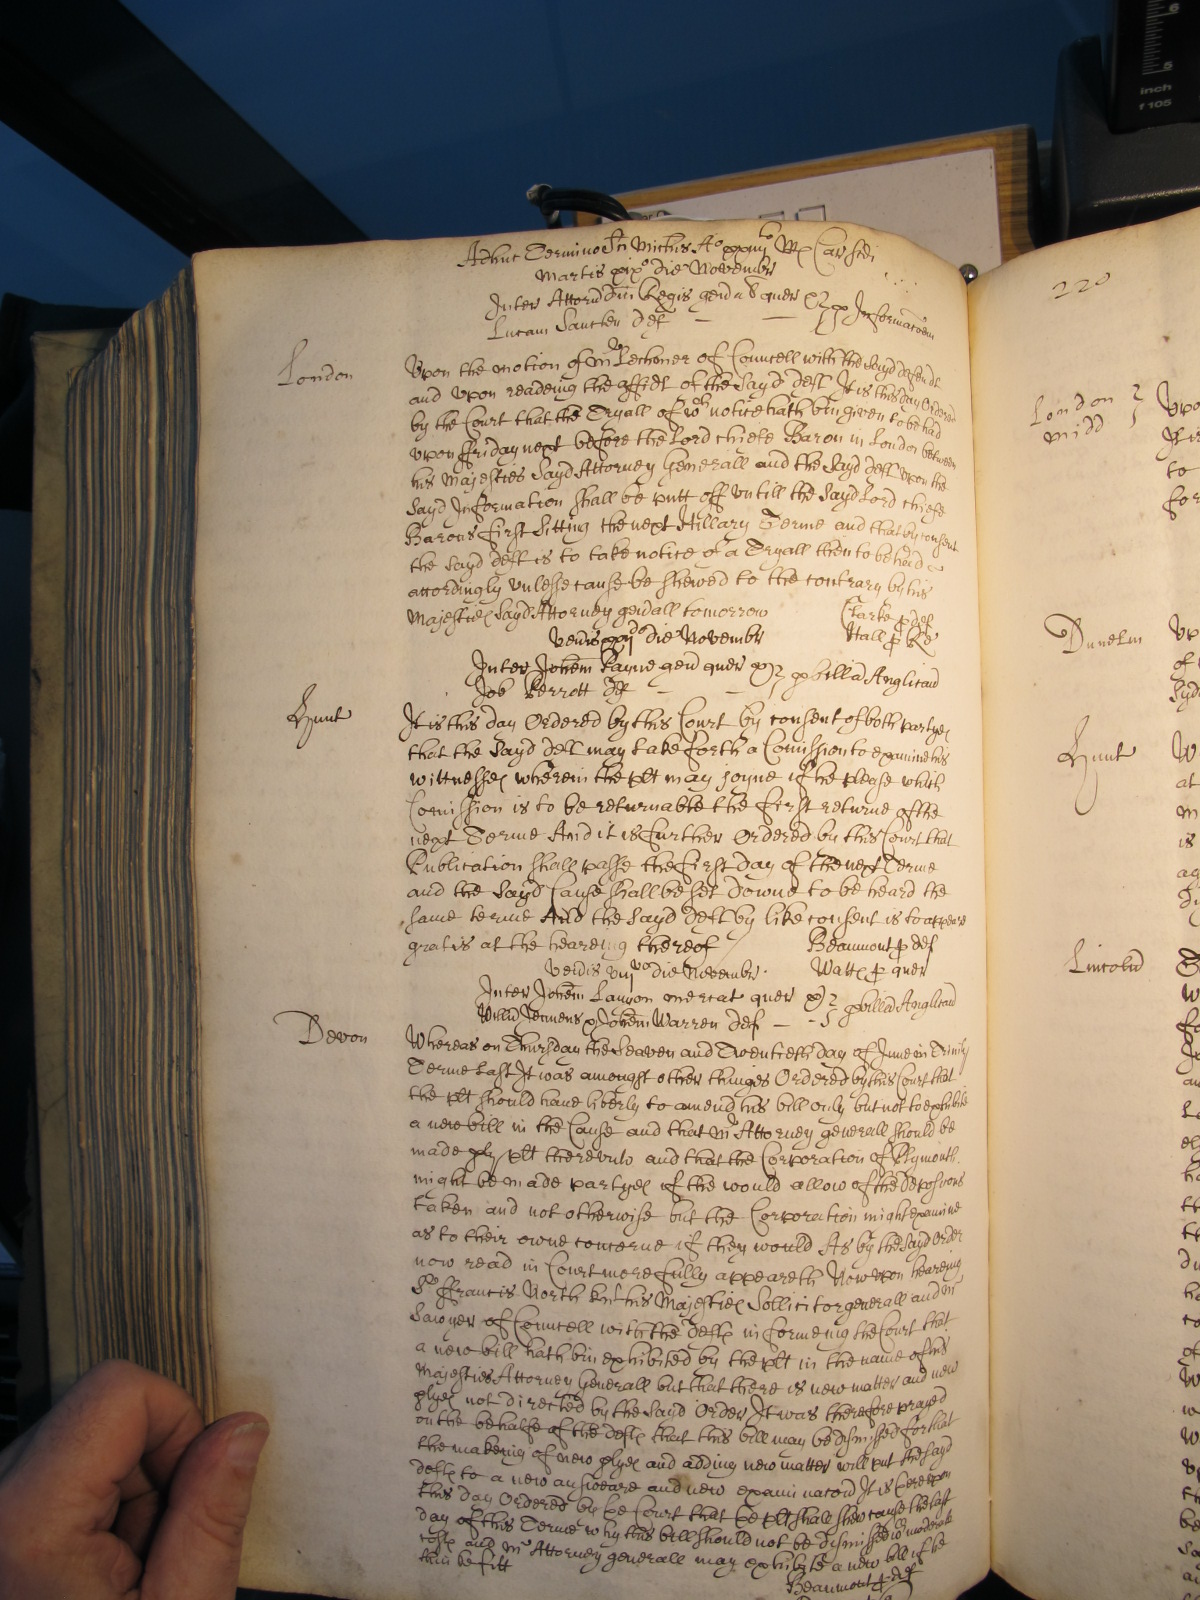 Adhuc Termino Sti Michis Ao xxiiijto Rx Car scdi
Martis xixo die Novembr
Inter Attorn dni Regis genal quer
Lucam Lucken def
p Informacoem
London
Upon the motion of Mr Lechmer of Councell with the sayd defendt
and upon readeing the affidt of the sayd deft It is this day Ordered
by the Court that the Tryall of wch notice hath bin given to be had
upon ffriday next before the Lord chiefe Baron in London betweene
his Majesties sayd Attorney Generall and the sayd deft upon the
sayd Information shall be putt off untill the sayd Lord chiefe
Barons first sitting the next Hillary Terme and that by consent
the sayd deft is to take notice of a Tryall then to be had
accordingly unlesse cause be shewed to the contrary by his
Majesties sayd Attorney genall tomorrow
Clarke p def
Hall p Re
veneris xxijdo die Novembr
Inter Johem Payne gen quer
Job Perrott def
p billa Anglican
Hunt
It is this day Ordered by this Court by consent of both partyes
that the sayd deft may take forth a Comission to examine his
wittnesses wherein the plt may joyne if he please which
Comission is to be returnable the first returne of the
next Terme And it is further Ordered by this Court that
Publication shall passe the first day of the next Terme
and the sayd Cause shall be set downe to be heard the
same terme And the sayd deft by like consent is to appeare
gratis at the heareing thereof
Beaumont p def
Watts p quer
veneris die Novembr
Inter Johem Lanyon mercat quer
Willm Jennens & Johem Warren def
p billa Anglican
Devon
Whereas on Thursday the Seaven and Twentieth day of June in Trinity
Terme last It was amongst other things Ordered by this Court that
the plt should have liberty to amend his bill only but not to exhibite
a new bill in the Cause and that Mr Attorney generall should be
made plt thereunto and that the Corporation of Plymouth
might be made partyes if the would allow of the deposicons
taken and not otherwise but the Corporation might examine
as to their owne concerne if they would As by the sayd Order
now read in Court more fully appeareth Now upon heareing
Sr ffrancis North Knt his Majesties Sollicitor generall and Mr
Sawyer of Councell with the defts informeing the Court that
a new bill hath bin exhibited by the plt in the name of his
Majesties Attorney Generall but that there is new matter and new
ptyes not directed by the sayd Order It was therefore prayed
on the behalfe of the defts that this bill may be dismissed for that
the makeing of new ptyes and adding new matter will put the sayd
defts to a new answeare and new examinacon It is thereupon
this day Ordered by the Court that the plt shall shew cause the last
day of this Terme why this bill should not be dismissed wth moderate
costs and Mr Attorney generall may exhibite a new bill if he
thinke fitt
Beaumont p def
220
London
Midd
Dunelm
Hunt
Lincoln
inch
f 105